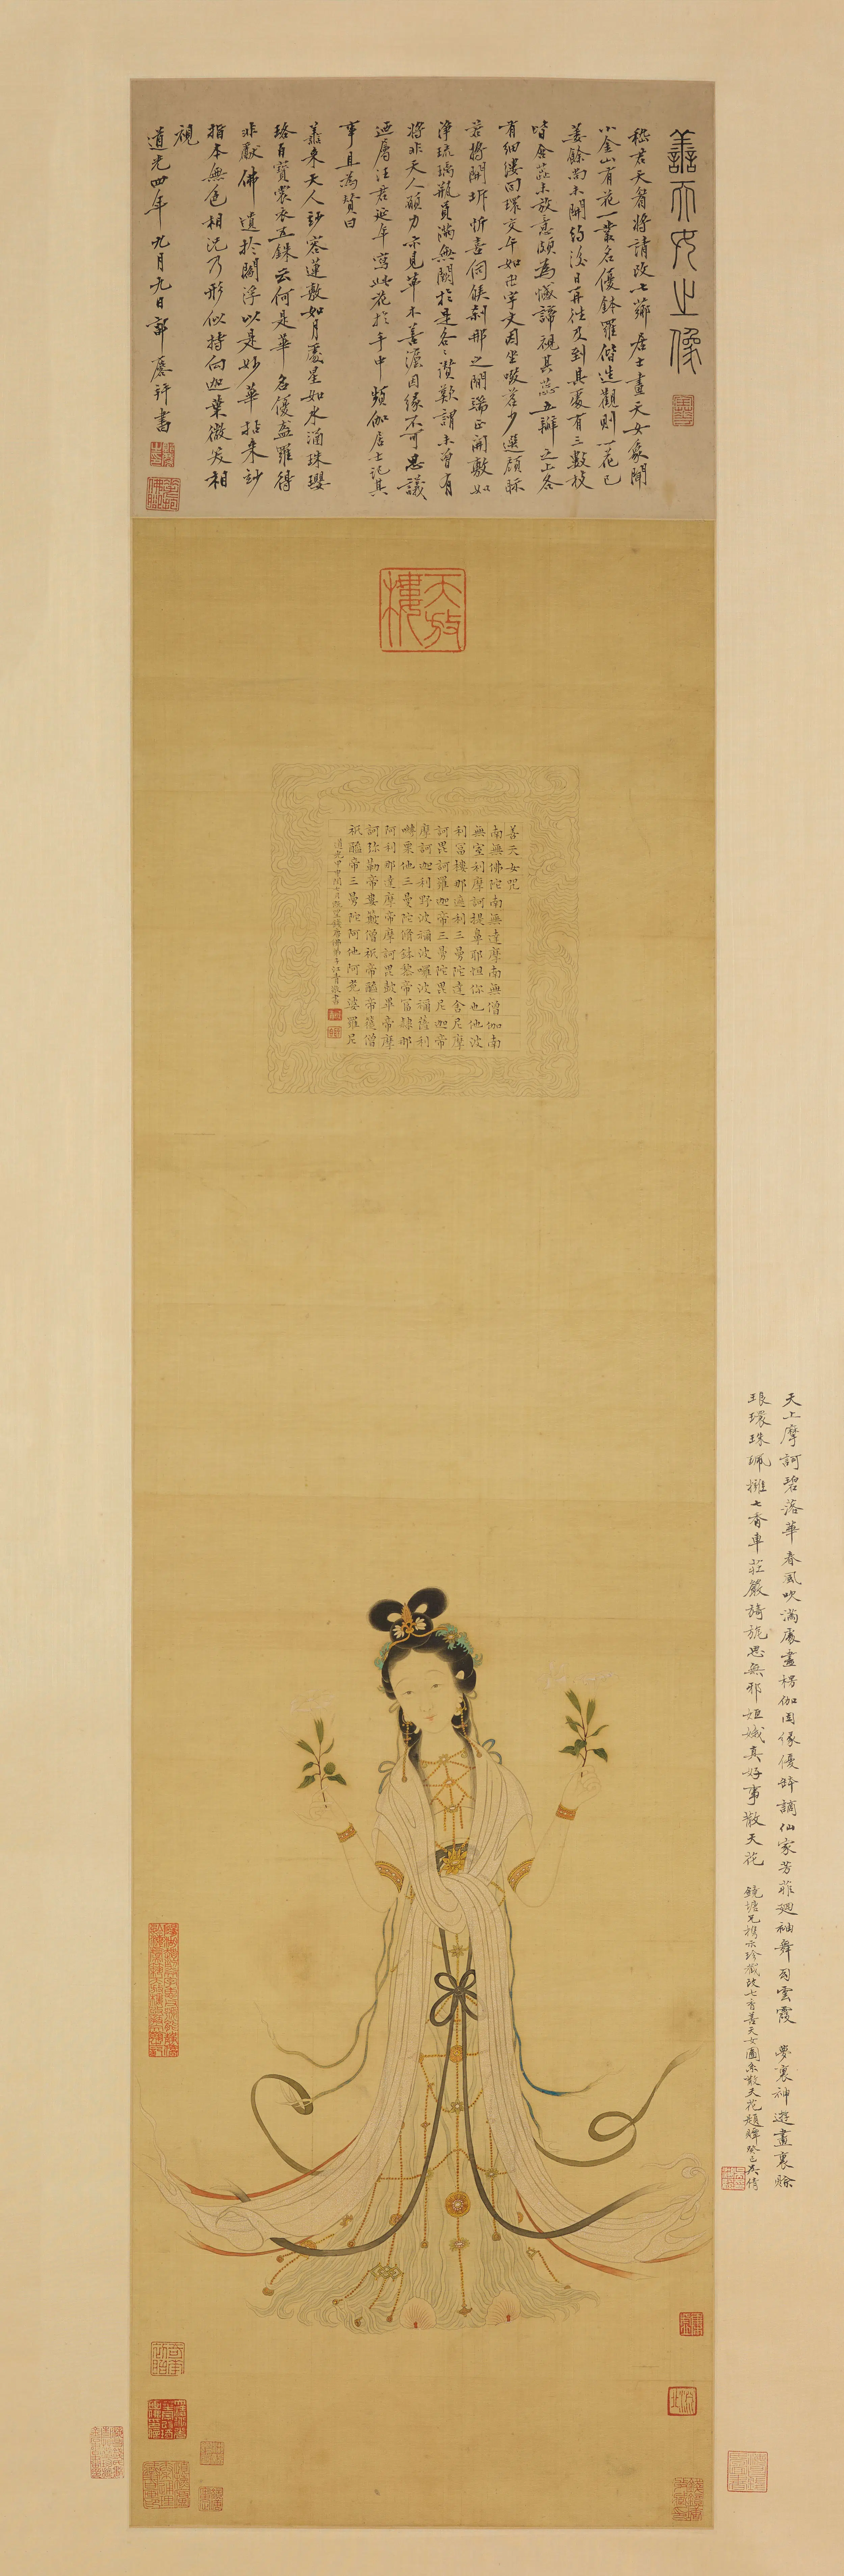 善天女之像
嵇君天眉將請改七薌居士畫天女象聞
小金山有花一叢名優鉢羅偕造觀則一花已
萎餘尚未開約後日再往及到其處有三數枝
皆含蕊未放意頗為憾諦視其蕊五瓣之上各
有細縷回環交午如卍字文因坐啜茗少選顧眎
若將開坼忻喜伺候剎那之間端正開敷如
淨琉璃瓶員滿無闕於是各各讚歎謂未曾有
將非天人願力示見華不善滬因緣不可思議
迺屬汪君延年寫此花於手中頻伽居士記其
事且為贊曰
善來天人妙容蓮敷如月處星如水涌珠瓔
珞百寶裳衣五銖云何是華名優盋羅得
非獻佛遺於閻浮以是妙華拈來妙
指本無色相況乃形似持向迦葉微笑相
視
道光四年九月九日郭麐並書
天放樓
善天女咒
南無佛陀南無達摩南無僧伽南
無室利摩訶提鼻耶怛你也他波
利富樓那遮利三曼陀達舍尼摩
訶毘訶羅伽帝三曼陀毘尼伽帝
摩訶迦利野波禰波囉波禰薩利
嚩栗他三曼陀脩鉢黎帝富隸那
阿利那達摩帝摩訶毘鼓畢帝摩
訶彌勒帝婁簸僧祇帝醯帝簁僧
祇醯帝三曼陀阿他阿㝹婆羅尼
天上摩訶碧落華春風吹滿處盡楞伽因緣優鉢謫仙家芳菲迴袖舞西雲霞 夢裏神遊畫裏賒
琅環珠珮擁七香車莊嚴旖旎思無邪姮娥真好事散天花 鏡塘兄攜示珍藏改七香善天女圖系散天花題牌癸巳吳倩